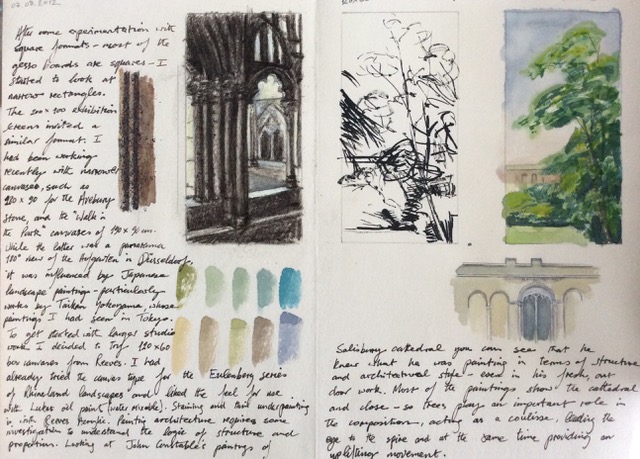 07.08.2012
After some experimentation with
square formats - most of the
gesso boards are squares - I
started to look at
narrow rectangles.
The 200 x 300 exhibition
screens invited a
similar format. I
had been working
recently with narrower
canvases, such as
x 90 for the Avebury
Stone, and the 'Walk in
the Park' canvases of x 90 cm.
While the latter was a panorama
180° view of the Hofgarten in Düsseldorf,
it was influenced by Japanese
landscape painting - particularly
works by Taikan Yokoyama, whose
paintings I had seen in Tokyo.
To get started with larger studio
work I decided to try 120 x 60
box canvases from Reeves. I had
already tried the canvas type for the Eulenberg series
of Rhineland landscapes and liked the feel for use
with Lukas oil paint (water mixable). Staining and thin underpainting
is with Reeves Acrylic. Painting architecture requires some
investigation to understand the logic of structure and
proportion. Looking at John Constable's paintings of
Salisbury cathedral you can see that he
knew what he was painting in terms of structure
and architectural style - even in his fresh, out
door work. Most of the paintings show the cathedral
and close - so trees play an important role in
the composition, acting as a coulisse, leading the
eye to the spire and at the same time providing an
uplifting movement.